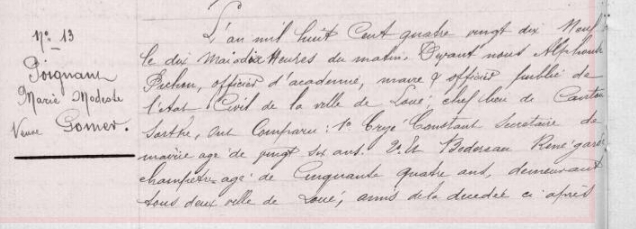 N° 13
Poignant
Marie Modeste
Veuve Gomer.
L'an mil huit Cent quatre vingt dix Neuf
le dix Mai dix Heures du matin Devant nous Alphonse
Pichon, officier d'académie, maire & officier public de
l'état Civil de la ville de Loué, chef lieu de Canton
Sarthe, ont Comparu: 1° Constant Secrétaire de
mairie agé de vingt six ans. 2° Et René garde
champêtre agé de Cinquante quatre ans, demeurant
tous deux ville de Loué, amis de la décédée ci après